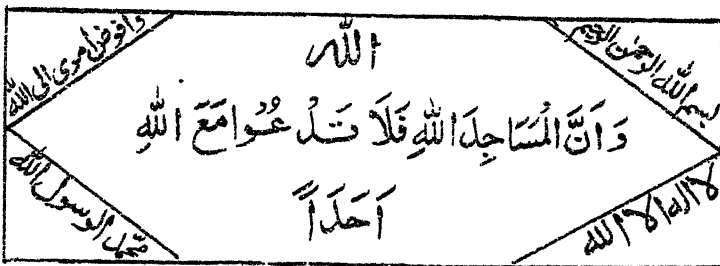 بسم الله الرحمٰن الرحيم
وافوض امرى الى الله
الله
وَاَنَّ الْمَسَاجِدَ اللهِ فَلَا تَدْعُوا مَعَ اللهِ
اَحَدَاً
لا اله الا الله
محمد الرسول الله